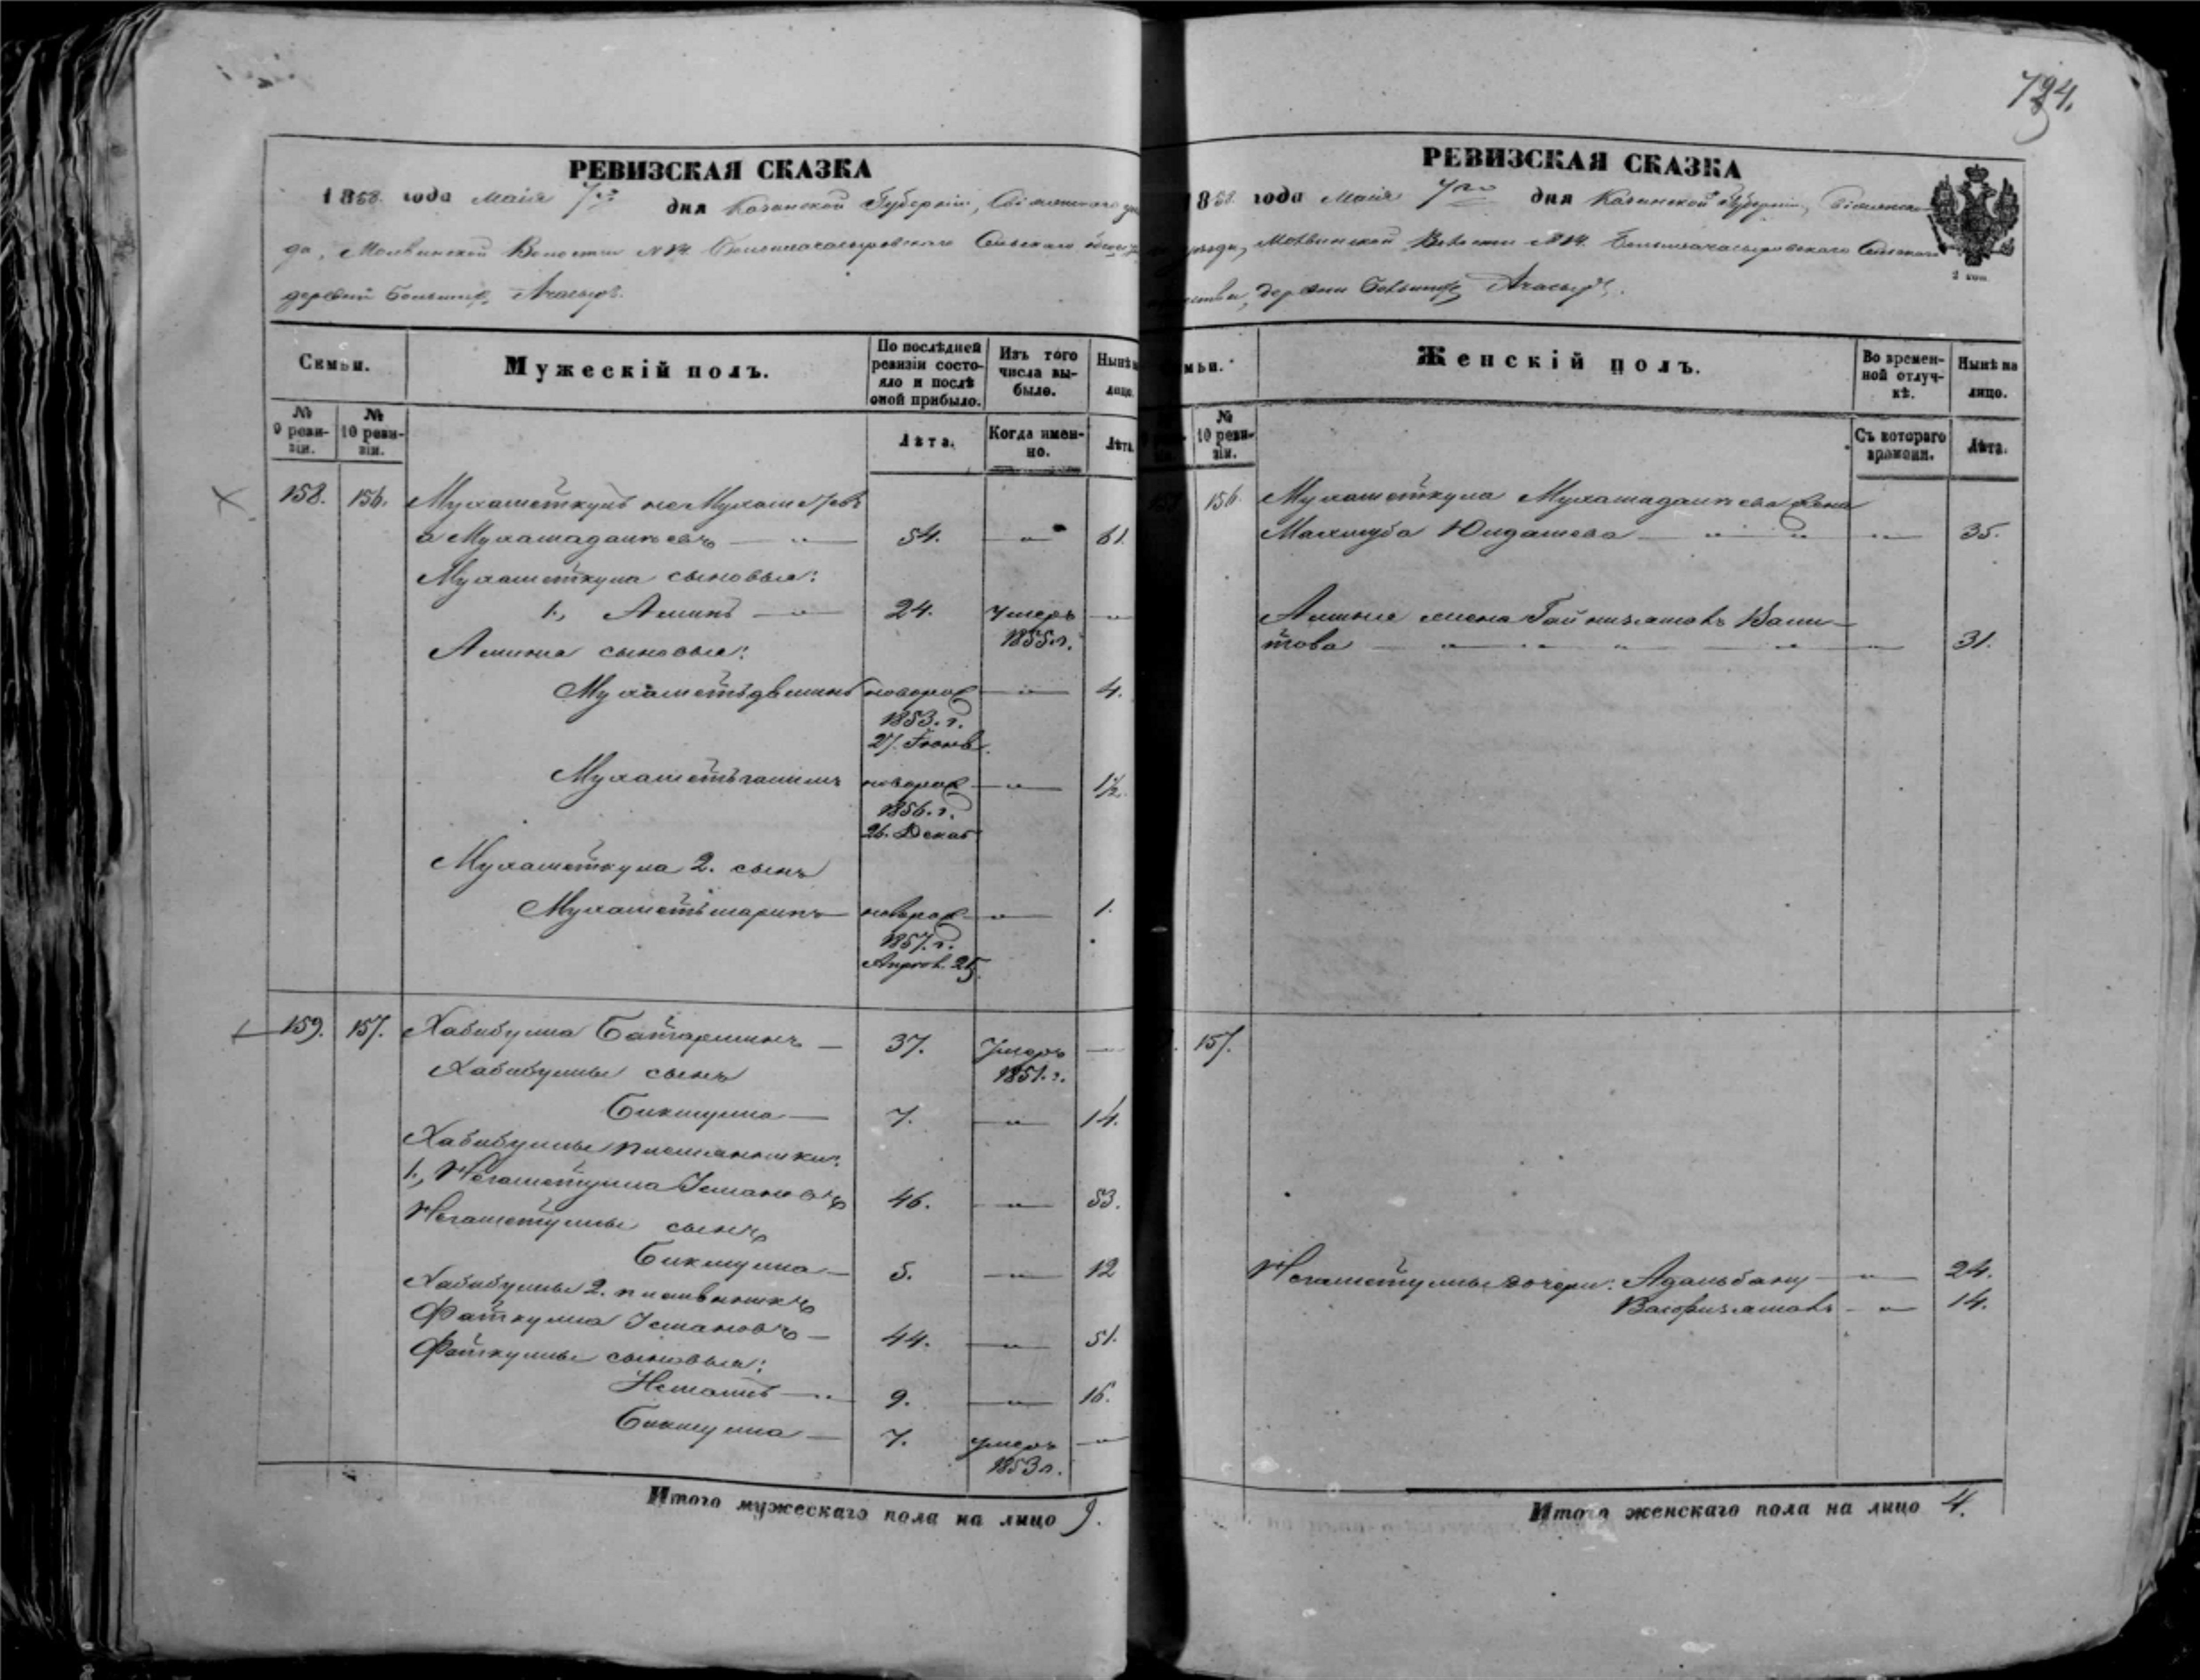 794.
РЕВИЗСКАЯ СКАЗКА
1858 года Маія 7го дня Казанской Губерніи, Свіяжскаго уѣз
да, Молвинской Волости № 14. Большеачасыровскаго Сельскаго общ
деревни Большихъ Ачасыръ.
Семьи.
Мужескій полъ.
По послѣдней ревизіи состояло и послѣ оной прибыло.
Изъ того числа выбыло.
Нынѣ на лицо.
№ 9 ревизіи.
№ 10 ревизіи.
Лѣта.
Когда именно.
Лѣта.
158. 156. Мухаметкулъ не Мухаметевъ
а Мухамадаліевъ — " — 54. — " — 61.
Мухаметкула сыновья:
1., Аминъ — " — 24. Умеръ 1855 г. — " —
Амина сыновья:
Мухаметъдѣминъ новорож 1853. г. 27. Гюнь. — " — 4.
Мухаметъгалимъ новорож 1856. г. 26. Декаб — " — 1½.
Мухаметкула 2. сынъ
Мухаметшарипъ новорож 1857. г. Апрѣл. 25. — " — 1.
159. 157. Хабибулла Батаршинъ — 37. Умеръ 1851. г. —
Хабибуллы сынъ
Бикмулла — 7. — " — 14.
Хабибуллы племянники:
1., Негаметулла Усмановъ 46. — " — 53.
Негаметуллы сынъ
Бикмулла — 5. — " — 12
Хабибуллы 2. племянникъ
Фаткулла Усмановъ — 44. — " — 51.
Фаткуллы сыновья:
Нематъ — " 9. — " — 16.
Бикмулла — 7. умеръ 1853 г. — " —
Итого мужескаго пола на лицо 9.
РЕВИЗСКАЯ СКАЗКА
1858. года Маія 7го дня Казанской Губерніи, Свіяжска
уѣзда, Молвинской Волости № 14. Большеачасыровскаго Сельскаго
ества, деревни Большихъ Ачасыръ.
2 коп.
мьи.
Женскій полъ.
Во временной отлучкѣ.
Нынѣ на лицо.
№ 10 ревизіи.
Съ котораго времени.
Лѣта.
156. Мухаметкула Мухамадаліева жена
Махжуба Юлдашева — " — " — " — 35.
Амина жена Гайнизямалъ Вали-
това — " — " — " — " — 31.
157.
Негаметуллы дочери: Адальбану — " — 24.
Вагфизямалъ — " — 14.
Итого женскаго пола на лицо 4.